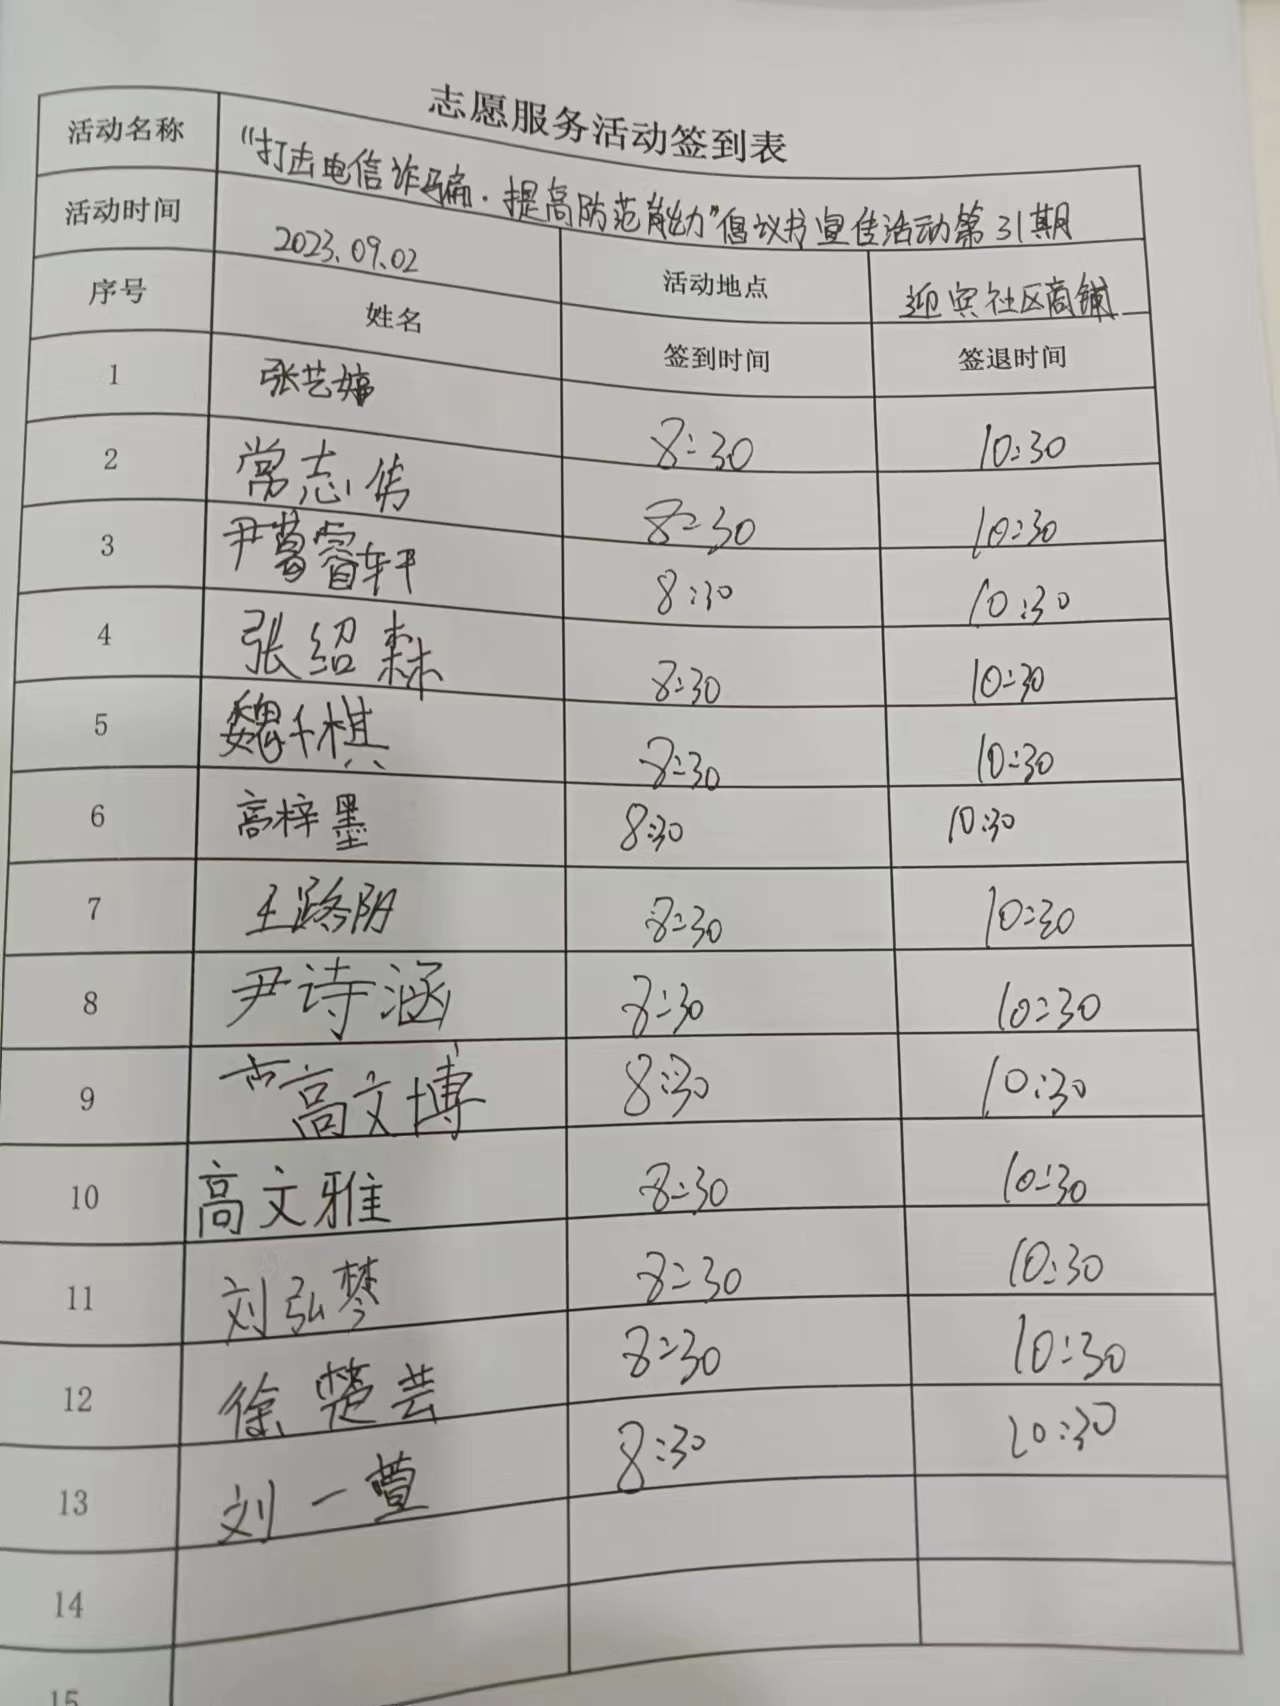 志愿服务活动签到表
活动名称 “打击电信诈骗·提高防范能力”倡议书宣传活动第31期
活动时间 2023.09.02 活动地点 迎宾社区商铺
序号 姓名 签到时间 签退时间
1 张艺婷 8:30 10:30
2 常志伟 8:30 10:30
3 尹葛睿轩 8:30 10:30
4 张绍森 8:30 10:30
5 魏千棋 8:30 10:30
6 高梓墨 8:30 10:30
7 王路阴 8:30 10:30
8 尹诗涵 8:30 10:30
9 高文博 8:30 10:30
10 高文雅 8:30 10:30
11 刘弘梦 8:30 10:30
12 徐楚芸 8:30 10:30
13 刘一萱 8:30 10:30
14
15